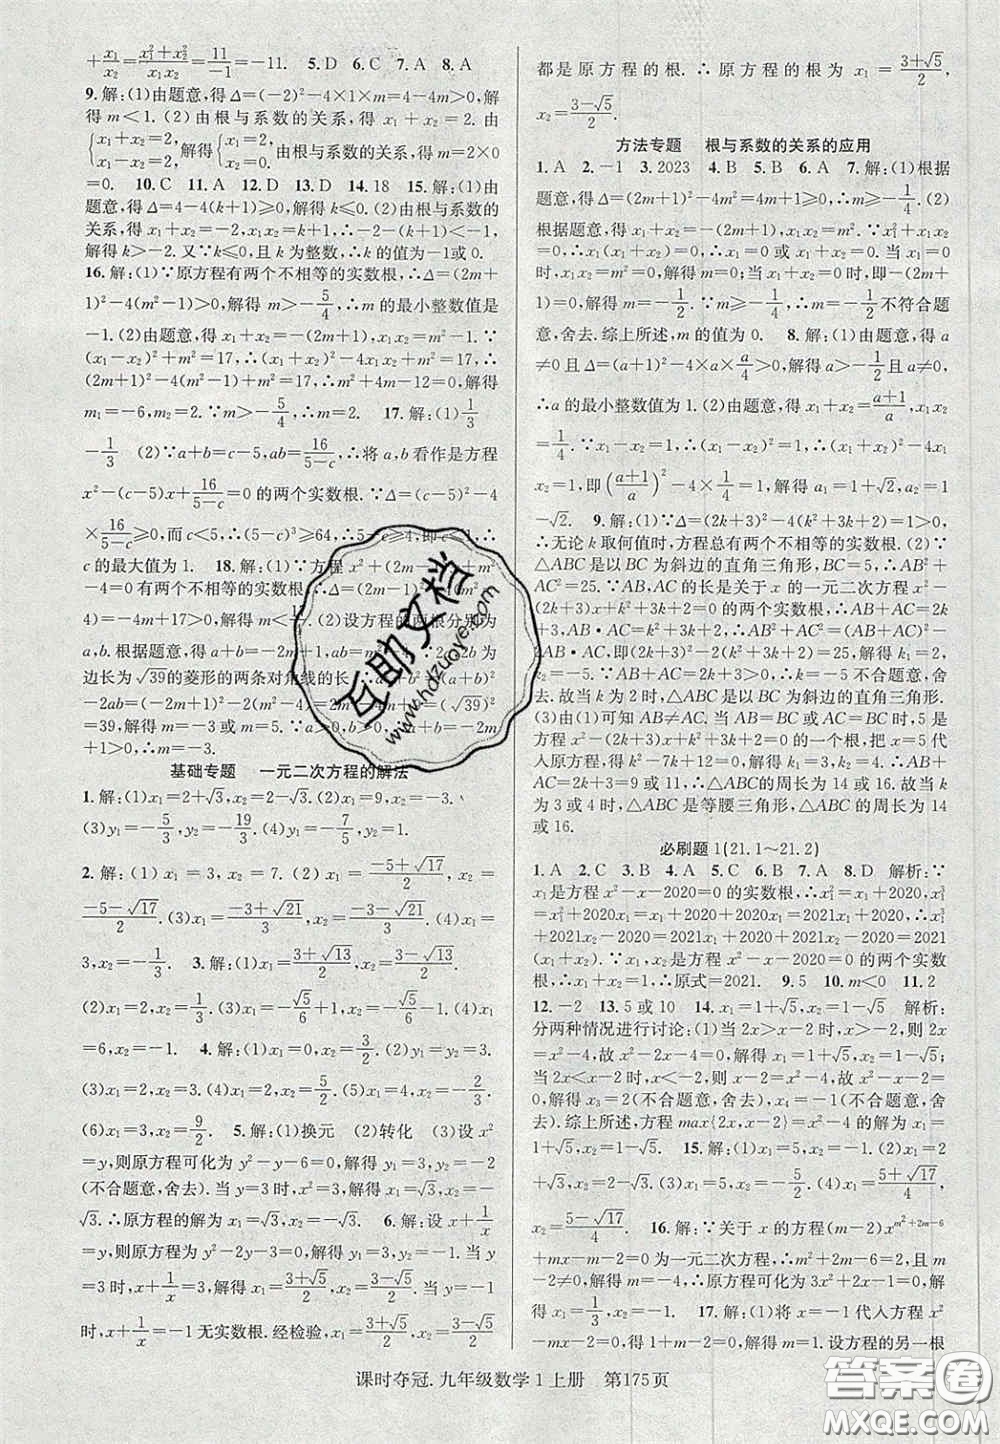 +x₁/x₂=(x₁²+x₂²)/(x₁x₂)=11/-1=-11. 5.D 6.C 7.A 8.A
9.解:(1)由题意,得Δ=(-2)²-4×1×m=4-4m>0,解
得m<1. (2)由根与系数的关系,得x₁+x₂=2. 由
{x₁+x₂=2, x₁-x₂=2, 解得{x₁=2, x₂=0, 由根与系数的关系,得m=2×0
=0. 10.C 11.A 12.D 13.D 14.18 15.解:(1)由
题意,得Δ=4-4(k+1)≥0,解得k≤0. (2)由根与系数的
关系,得x₁+x₂=-2,x₁x₂=k+1,∴-2-(k+1)<-1,
解得k>-2. 又∵k≤0,且k为整数,∴k的值为-1或0.
16.解:(1)∵原方程有两个不相等的实数根,∴Δ=(2m+
1)²-4(m²-1)>0,解得m>-5/4,∴m的最小整数值是
-1. (2)由题意,得x₁+x₂=-(2m+1),x₁x₂=m²-1. ∵
(x₁-x₂)²+m²=17,∴(x₁+x₂)²-4x₁x₂+m²=17,∴
(2m+1)²-4(m²-1)+m²=17,∴m²+4m-12=0,解得
m₁=-6,m₂=2. ∵m>-5/4,∴m=2. 17.解:(1)3
-1/3 (2)∵a+b=c-5,ab=16/(5-c),∴将a,b看作是方程
x²-(c-5)x+16/(5-c)=0的两个实数根. ∵Δ=(c-5)²-4
×16/(5-c)≥0,而c<5,∴(5-c)³≥64,∴5-c≥4,即c≤1,∴
c的最大值为1. 18.解:(1)∵方程x²+(2m-1)x+m²
-4=0有两个不相等的实数根,∴Δ=
4)=-4m+17>0,解得m< (2)设方程的两根分别为
a,b. 根据题意,得a+b=-2m+1,ab=
边长为√39的菱形的两条对角线的长,∴
-2ab=(-2m+1)²-2(m²-4)=2m²-4m+9=(√39)²
=39,解得m=-3或m=5. ∵a>0,b>0,∴a+b=-2m
+1>0,∴m=-3.
基础专题 一元二次方程的解法
1.解:(1)x₁=2+√3,x₂=2-√3. (2)x₁=9,x₂=-3.
(3)y₁=-5/3,y₂=-19/3. (4)y₁=-7/5,y₂=1.
2.解:(1)x₁=3,x₂=7. (2)x₁=(-5+√17)/2,x₂=
(-5-√17)/2. (3)x₁=(-3+√21)/2,x₂=(-3-√21)/2. (4)x₁=
3,x₂=-1/3. 3.解:(1)x₁=(3+√13)/2,x₂=(3-√13)/2.
(2)x₁=-1,x₂=1/3. (3)x₁=-√5/6+1,x₂=√5/6+1. (4)x₁
=6,x₂=-1. 4.解:(1)x₁=0,x₂=3/2. (2)y₁=y₂=3.
(3)x₁=2,x₂=4. (4)x₁=2,x₂=5/2. (5)x₁=5/2,x₂=3.
(6)x₁=3,x₂=9/2. 5.解:(1)换元 (2)转化 (3)设x²
=y,则原方程可化为y²-y-6=0,解得y₁=3,y₂=-2
(不合题意,舍去). 当y=3时,x²=3,解得x₁=√3,x₂=-
√3. ∴原方程的解为x₁=√3,x₂=-√3. 6.解:设x+1/x
=y,则原方程可化为y²-2y-3=0,解得y=3或y=-1. 当
y=3时,x+1/x=3,解得x₁=(3+√5)/2,x₂=(3-√5)/2. 当y=-1
时,x+1/x=-1无实数根. 经检验,x₁=(3+√5)/2,x₂=(3-√5)/2
都是原方程的根. ∴原方程的根为x₁=(3+√5)/2,
x₂=(3-√5)/2.
方法专题 根与系数的关系的应用
1.A 2.-1 3.2023 4.B 5.B 6.A 7.解:(1)根据
题意,得Δ=(2m+1)²-4m²=4m+1≥0,∴m≥-1/4. (2)
根据题意,得x₁+x₂=-(2m+1),x₁x₂=m². ∵x₁²+x₁x₂
=0,∴x₁(x₁+x₂)=0,∴x₁=0或x₁+x₂=0. 当x₁=0
时,x₁x₂=m²=0,解得m=0;当x₁+x₂=0时,即-(2m+
1)=0,解得m=-1/2. ∵m≥-1/4,∴m=-1/2不符合题
意,舍去. 综上所述,m的值为0. 8.解:(1)由题意,得a
≠0且Δ=[-(a+1)]²-4×a×a/4>0,解得a>-1/2且a≠0,
∴a的最小整数值为1. (2)由题意,得x₁+x₂=(a+1)/a,x₁x₂
=1/4. ∵|x₁-x₂|=1,∴(x₁-x₂)²=1,∴(x₁+x₂)²-4x₁
x₂=1,即((a+1)/a)²-4×1/4=1,解得a₁=1+√2,a₂=1
-√2. 9.解:(1)∵Δ=(2k+3)²-4(k²+3k+2)=1>0,
∴无论k取何值时,方程总有两个不相等的实数根. (2)∵
△ABC是以BC为斜边的直角三角形,BC=5,∴AB²+
AC²=25. ∵AB,AC的长是关于x的一元二次方程x²-
(2k+3)x+k²+3k+2=0的两个实数根,∴AB+AC=2k
+3,AB·AC=k²+3k+2,∴AB²+AC²=(AB+AC)²-
2AB·AC,即(2k+3)²-2(k²+3k+2)=25,解得k=2或
k=-5. ∵AB+AC=2k+3>0,∴k=-5不合题意,舍
去. 故当k为2时,△ABC是以BC为斜边的直角三角形.
(3)由(1)可知AB≠AC. 当AB=BC或AC=BC时,5是
方程x²-(2k+3)x+k²+3k+2=0的一个根,把x=5代
入原方程,解得k=3或k=4. 当k=3时,x²-9x+20=0,
解得x₁=4,x₂=5,∴△ABC的周长为14. 当k=4时,x²
-11x+30=0,解得x₁=5,x₂=6,∴△ABC的周长为16. 故当k
为3或4时,△ABC是等腰三角形,△ABC的周长为14
或16.
必刷题1(21.1~21.2)
1.A 2.C 3.B 4.C 5.C 6.B 7.A 8.D 解析:∵
x₁是方程x²-x-2020=0的实数根,∴x₁²=x₁+2020,x₁³
=x₁²+2020x₁=x₁+2020+2020x₁=2021x₁+2020,∴x₁³
+2021x₂-2020=2021x₁+2020+2021x₂-2020=2021
(x₁+x₂). ∵x₁,x₂是方程x²-x-2020=0的两个实数
根,∴x₁+x₂=1,∴原式=2021. 9.5 10.m<0 11.2
12.-2 13.5或10 14.x₁=1+√5,x₂=1-√5 解析:
分两种情况进行讨论:(1)当2x>x-2时,x>-2,则2x
=x²-4,故x²-2x-4=0,解得x₁=1+√5,x₂=1-√5. (2)
当2x<x-2时,x<-2,则x-2=x²-4,故x²-x-2=
0,解得x₃=2(不合题意,舍去),x₄=-1(不合题意,舍
去). 综上所述,方程max{2x,x-2}=x²-4的解为x₁=
1+√5,x₂=1-√5. 15.解:(1)x₁=5,x₂=-5/2. (2)x₁=2
+√3,x₂=2-√3. (3)x₁=1,x₂=-5. (4)x₁=(5+√17)/4,
x₂=(5-√17)/4. 16.解:∵关于x的方程(m-2)x^(m²+2m-6)
+mx-m=0为一元二次方程,∴m²+2m-6=2,且m-
2≠0,解得m=-4,∴原方程可化为3x²+2x-1=0,解
得x₁=1/3,x₂=-1. 17.解:(1)将x=1代入方程x²
-mx-2m=0,得1-m-2m=0,解得m=1/3. 设方程的另一根
课时夺冠. 九年级数学1上册 第175页
互助文档
www.hdzuoye.com
答案圈
MXQE.COM